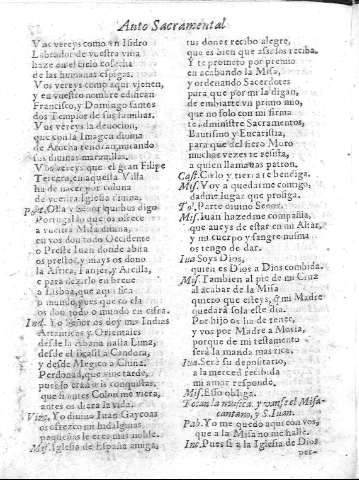 Auto Sacramental
Vos vereys como en Isidro
Labrador de vuestra viña
haze en el cielo cosecha
de las humanas espigas.
Vos vereys como aqui vienen,
y en vuestro nombre edifican
Francisco, y Domingo santos
dos Templos de sus familias.
Vos vereys la deuocion,
que con la Imagen diuina
de Atocha
sus diuinas marauillas.
Vos vereys que el gran Filipe
Tercero, en aquesta Villa
ha de nacer por coluna
de vuestra Iglesia diuina.
Señor
Portugal lo que os ofrece
a vuestra Missa diuina,
en vos don todo Occidente
o Preste Iuan donde abita
os prestos, y mas os dono
la Africa, Tanjer, y Arcilla,
e para dezirlo en breue
o Lisboa, que aqui
o mundo, pues que to ela
os dou todo o mundo en cifra.
Ind. Yo señor os doy mis Indias
Antarticas y Orientales
desde la Abana hasta Lima,
desde el
y desde Megico a China.
Perdonad, que vine tarde,
pues lo eran mis conquistas,
que si antes Colon me viera,
antes os diera la vida.
Vizc. Yo diuino Iuan Gaycoa
os ofrezco mi hidalguia,
pequeña le eres mas noble.
Mis. Iglesia de España amiga,
tus dones recibo alegre,
que es bien que assi los reciba.
Y te prometo por premio
en acabando la Missa,
y ordenando Sacerdotes
para que por mi la digan,
de embiarte vn primo mio,
que no solo con mi firma
te administre Sacramentos,
Bautismo y Eucaristia,
para que del fiero Moro
muchas vezes te resista,
a quien llamaras patron,
Cast. Cielo y tierra te bendiga.
Mis. Voy a quedarme contigo,
dadme lugar que prosiga.
To. Parte diuino Señor.
Mis. Iuan hazedme compañia,
que aueys de estar en mi Altar,
y mi cuerpo y sangre misma
os tengo de dar.
Iua Soys Dios,
quien es Dios a Dios combida.
Mis. Tambien al pie de mi Cruz
al acabar de la Missa
quiero que esteys, q̃ mi Madre
quedarà sola este dia.
Por hijo os ha de tener,
y vos por Madre a Maria,
porque de mi testamento
serà la manda mas rica.
Iua. Serà su depositario,
a la merced recebida
mi amor respondo.
Mis. Esso obliga.
Tocan la musica, y vanse el Missa-
cantano, y S. Iuan.
Pab. Yo me quedo aqui con vos,
que a la Missa no me halle.
Inc. Pues si a la Iglesia de Dios
per-